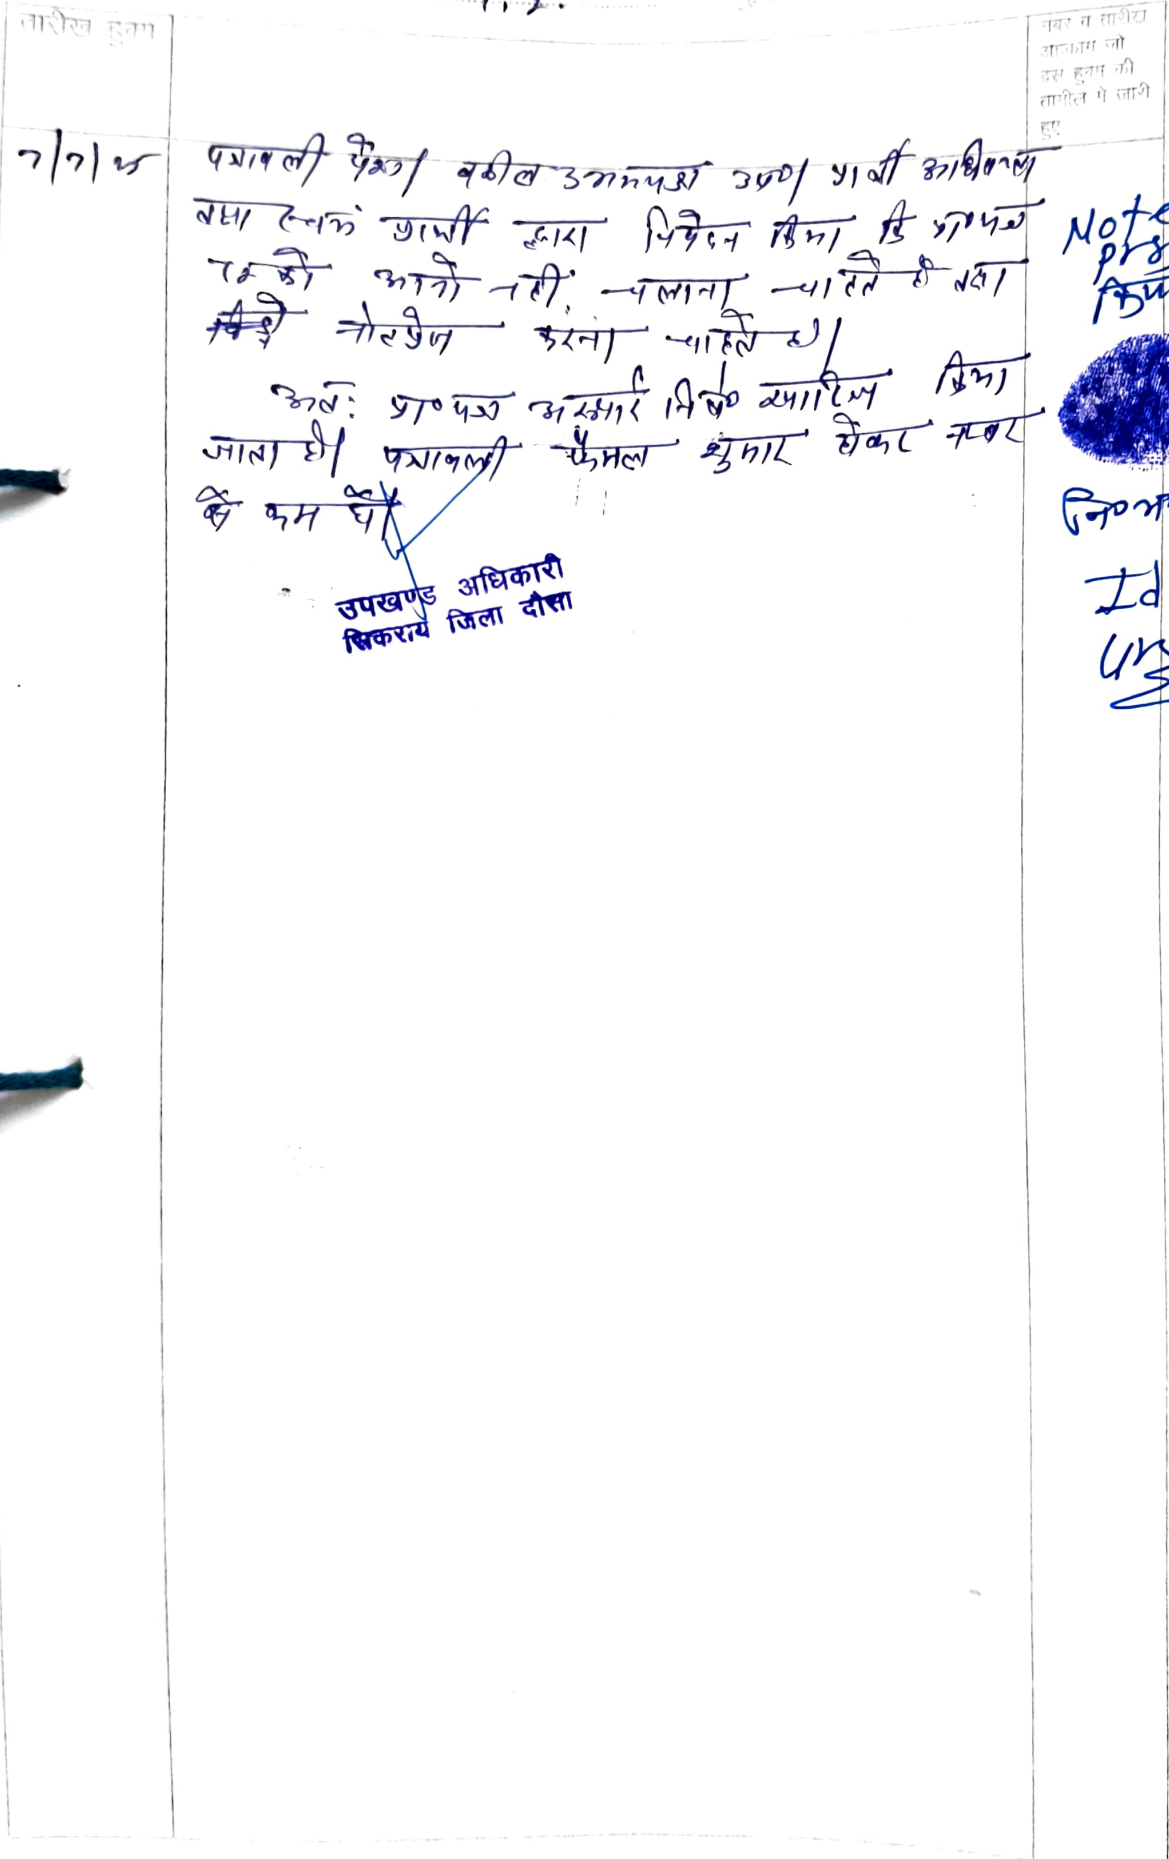 तारीख हुक्म
नंबर व तारीख
अहकाम जो
इस हुक्म की
तामील में जारी
हुए
7/7/25
पत्रावली पेश। वकील उभयपक्ष उप०। प्रार्थी अधिवक्ता
तथा स्वयं प्रार्थी द्वारा निवेदन किया कि प्रा०पत्र
को आगे नहीं चलाना चाहते है तथा
नोटप्रेस करना चाहते है।
अतः प्रा०पत्र अस्थाई नि०षे० खारिज किया
जाता है। पत्रावली फैसल शुमार होकर नम्बर
से कम हो।
उपखण्ड अधिकारी
सिकराय जिला दौसा
Note
Id